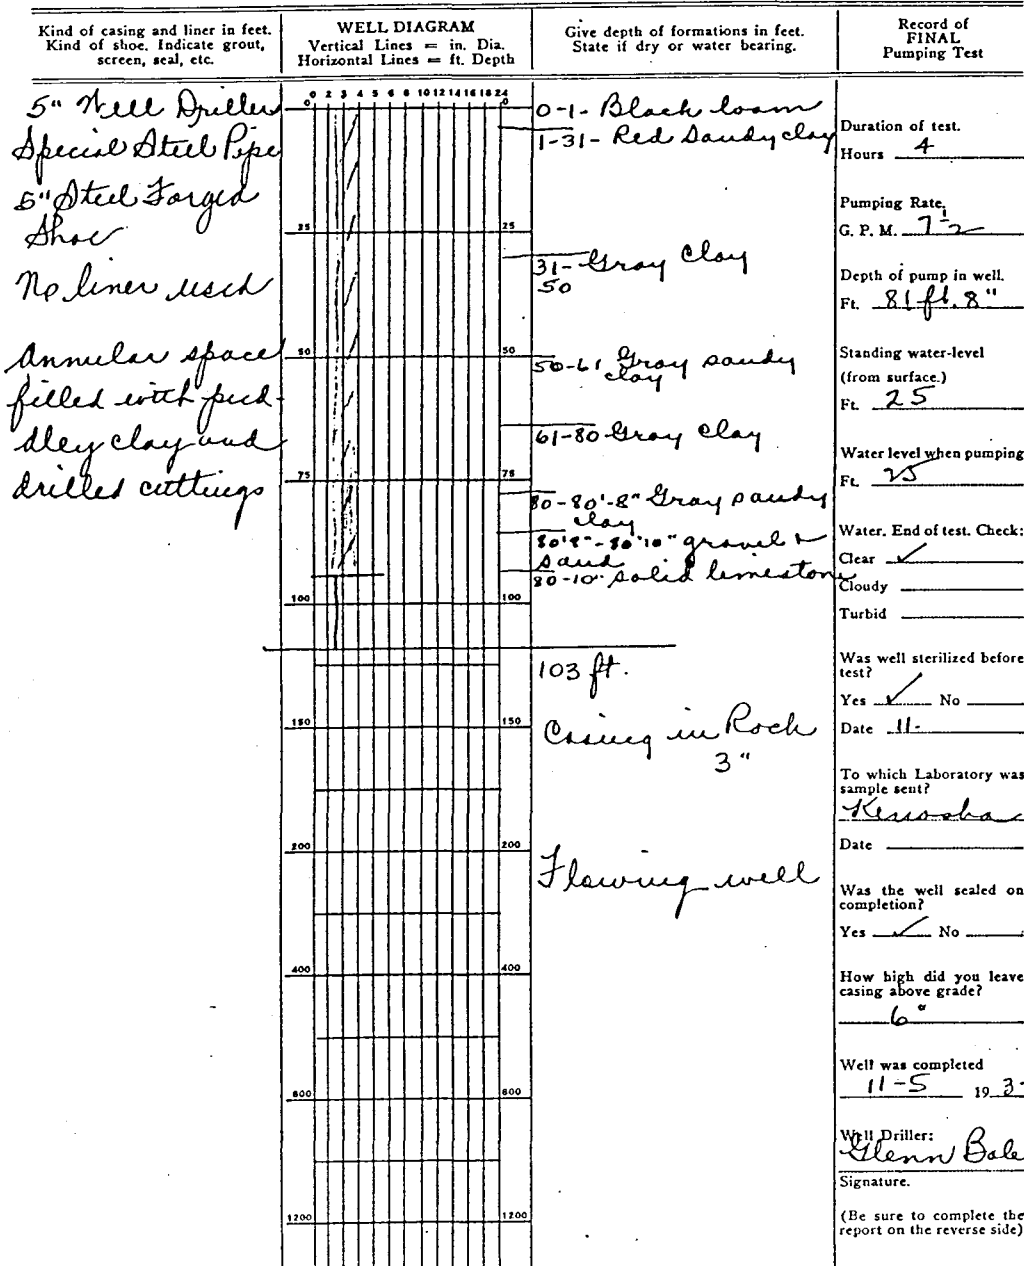 Kind of casing and liner in feet.
Kind of shoe. Indicate grout,
screen, seal, etc.
5" Well Driller
Special Steel Pipe
5" Steel Forged
Shoe
No liner used
Annular space
filled with pud-
dley clay and
drilled cuttings
WELL DIAGRAM
Vertical Lines = in. Dia.
Horizontal Lines = ft. Depth
0 2 3 4 5 6 8 10 12 14 16 18 24
0 0
25 25
50 50
75 75
100 100
150 150
200 200
400 400
800 800
1200 1200
Give depth of formations in feet.
State if dry or water bearing.
0-1- Black loam
1-31- Red Sandy clay
31- Gray Clay
50
50-61 Gray sandy
clay
61-80 Gray clay
80-80'-8" Gray sandy
clay
80'8"-80'10" gravel &
sand
80-10" solid limestone
103 ft.
Casing in Rock
3"
Flowing well
Record of
FINAL
Pumping Test
Duration of test.
Hours 4
Pumping Rate.
G. P. M. 7 1/2
Depth of pump in well.
Ft. 81 ft. 8"
Standing water-level
(from surface.)
Ft. 25
Water level when pumping
Ft. 25
Water. End of test. Check:
Clear ✓
Cloudy
Turbid
Was well sterilized before
test?
Yes ✓ No
Date 11-
To which Laboratory was
sample sent?
Kenosha
Date
Was the well sealed on
completion?
Yes ✓ No
How high did you leave
casing above grade?
6"
Well was completed
11-5 19 3
Well Driller:
Glenn Bale
Signature.
(Be sure to complete the
report on the reverse side)